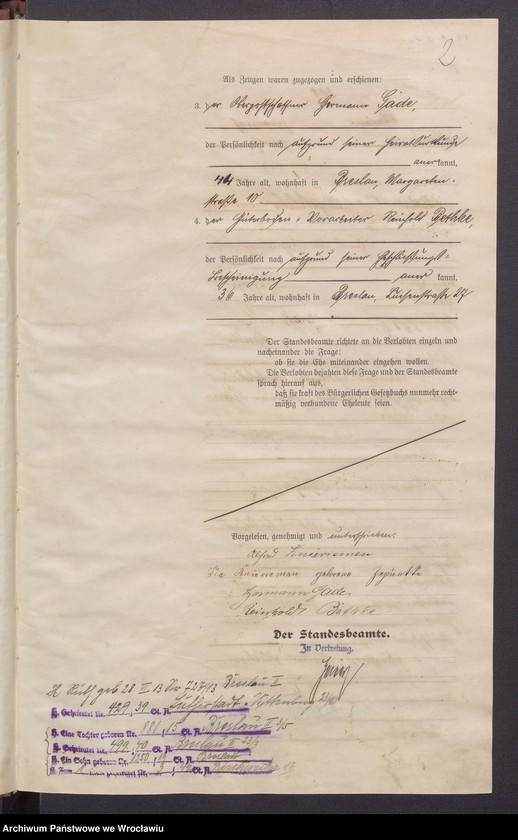 2
Als Zeugen waren zugezogen und erschienen:
3. der Oberpostschaffner Hermann Gade,
der Persönlichkeit nach aufgrund seiner Heiratsurkunde
anerkannt,
44 Jahre alt, wohnhaft in Breslau, Margareten-
straße 10
4. der Güterboden-Vorarbeiter Reinhold Bethke,
der Persönlichkeit nach aufgrund seiner Eheschließungs-
bescheinigung anerkannt,
36 Jahre alt, wohnhaft in Breslau, Luisenstraße 27
Der Standesbeamte richtete an die Verlobten einzeln und
nacheinander die Frage:
ob sie die Ehe miteinander eingehen wollen.
Die Verlobten bejahten diese Frage und der Standesbeamte
sprach hierauf aus,
daß sie kraft des Bürgerlichen Gesetzbuchs nunmehr recht-
mäßig verbundene Eheleute seien.
Vorgelesen, genehmigt und unterschrieben.
Alfred
geborene
Hermann Gade.
Reinhold Bethke
Der Standesbeamte.
In Vertretung.
geb 28. II 13 Nr 727/13 Breslau II
Geheiratet Nr. 429, 39 St. A. Lutherstadt-Wittenberg
Eine Tochter geboren Nr. 881, 15 St. A. Breslau II
Geheiratet Nr. 499, 40 St. A. Breslau II
Ein Sohn geboren Nr. St. A. Breslau
Archiwum Państwowe we Wrocławiu